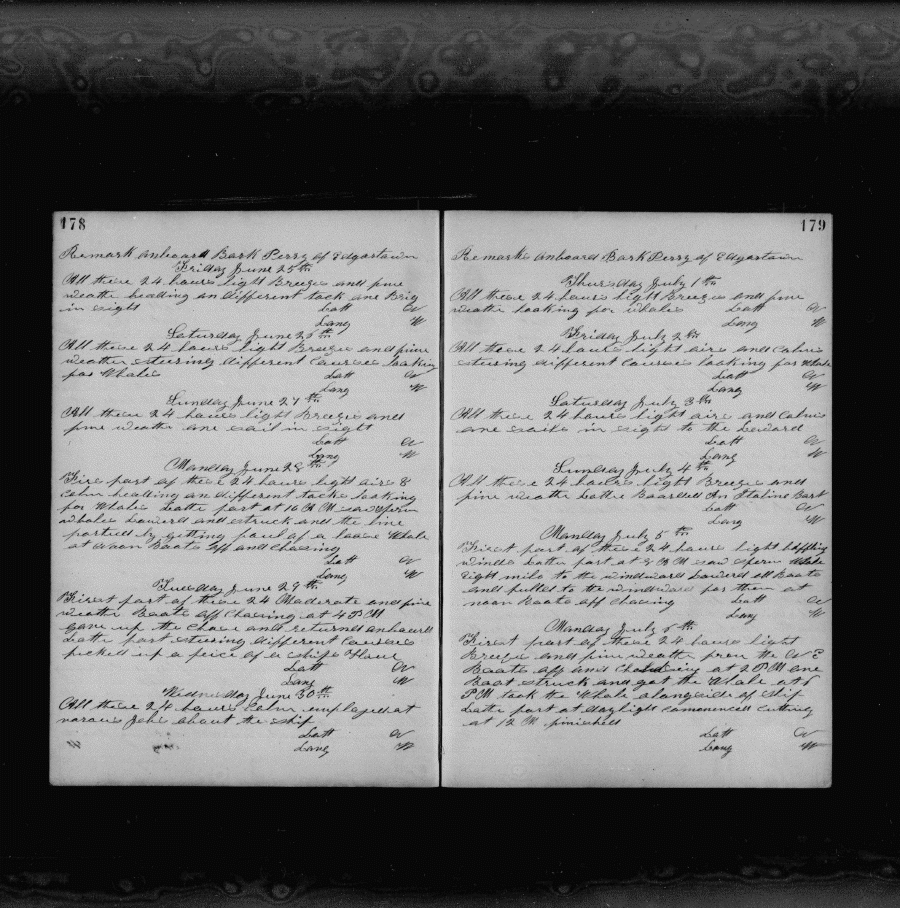 178
Remark onboard Bark Perry of Edgartown
Friday June 25th
All these 24 hours light Breeze and fine
weather heading on different tack one Brig
in sight Latt N
Long W
Saturday June 26th
All these 24 hours light Breeze and fine
weather steering different Courses looking
for Whales Latt N
Long W
Sunday June 27th
All these 24 hours light Breeze and
fine weather one sail in sight
Latt N
Long W
Monday June 28th
Firs part of these 24 hours light airs &
calm heading on different tacks looking
for Whales Latte part at 10 A M saw sperm
whales Lowerd and struck and the line
parted by getting foul of a loose Whale
at noon Boats off and chasing
Latt N
Long W
Tuesday June 29th
First part of these 24 Moderate and fine
weather Boats off Chasing at 4 P M
gave up the Chase and returned onboard
Latte part steering different Courses
picked up a peice of a ships
Latt N
Long W
Wednesday June 30th
All these 24 hours calm employed at
varous Jobs about the ship
Latt N
Long W
179
Remarks onboard Bark Perry of Edgartown
Thursday July 1th
All these 24 hours light Breeze and fine
weather looking for whales Latt N
Long W
Friday July 2th
All these 24 hours light airs and Calms
steering different Courses looking for Whale
Latt N
Long W
Saturday July 3th
All these 24 hours light airs and Calms
one sails in sight to the Leward
Latt N
Long W
Sunday July 4th
All these 24 hours light Breeze and
fine weather Latte Boarded An Italine Bark
Latt N
Long W
Monday July 5th
First part of these 24 hours light baffling
winds Latte part at 8 A M saw sperm Whale
eight mile to the windward Lowerd all Boats
and pulled to the windward for them at
noon Boats off chasing Latt N
Long W
Monday July 6th
First part of these 24 hours light
Breeze and fine weather from the N E
Boats off and Chaseing at 2 P M one
Boat struck and got the Whale at 6
P M took the Whale alongside of Ship
Latte part at daylight comenced cutting
at 12 M finished
Latt N
Long W